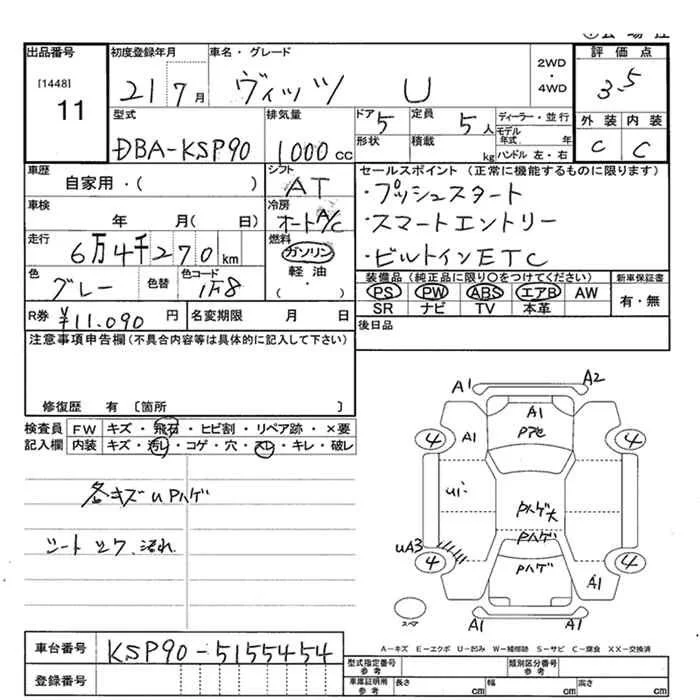 出品番号
[1448]
11
初度登録年月
21 7月
車名・グレード
ヴィッツ U
2WD
・
4WD
評価点
3.5
型式
DBA-KSP90
排気量
1000cc
ドア 5
形状
定員 5人
積載 kg
ディーラー・並行
モデル年式 年
ハンドル 左・右
外装 内装
C C
車歴
自家用・( )
シフト
AT
セールスポイント (正常に機能するものに限ります)
・プッシュスタート
・スマートエントリー
・ビルトインETC
車検
年 月( 日)
冷房
オートA/C
走行
6万4千270km
燃料
ガソリン
軽油
・( )
色
グレー
色替
色コード
1F8
装備品 (純正品に限り〇をつけてください)
PS PW ABS エアB AW
SR ナビ TV 本革
新車保証書
有・無
R券 ¥11,090 円
名変期限 月 日
後日品
注意事項申告欄(不具合内容等は具体的に記入して下さい)
修復歴 有 〔箇所 〕
検査員記入欄
FW キズ・飛石・ヒビ割・リペア跡・×要
内装 キズ・汚レ・コゲ・穴・スレ・キレ・破レ
各キズuPハゲ
シート 汚れ
A1 A2
A1
4 A1 4
Pハゲ大
Pハゲ
uA3
4 Pハゲ 4
A1
A1 A1
A-キズ E-エクボ U-凹み W-補修跡 S-サビ C-腐食 XX-交換済
車台番号 KSP90-5155454
登録番号
型式指定番号 参考
類別区分番号 参考
車庫証明用 参考
長さ cm
幅 cm
高さ cm